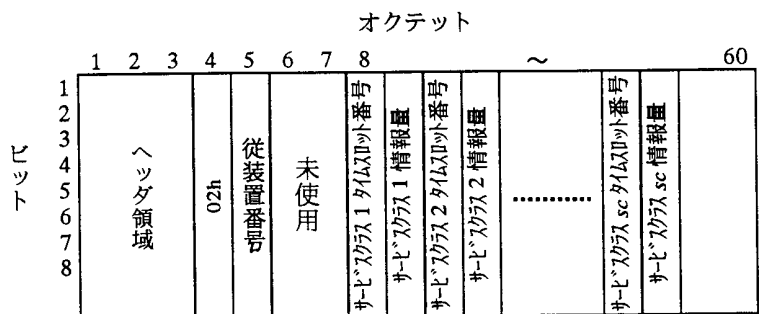 オクテット
1 2 3 4 5 6 7 8 ～ 60
ビット
1
2
3
4
5
6
7
8
ヘッダ領域
02h
従装置番号
未使用
サービスクラス1 タイムスロット番号
サービスクラス1 情報量
サービスクラス2 タイムスロット番号
サービスクラス2 情報量
…………
サービスクラス sc タイムスロット番号
サービスクラス sc 情報量